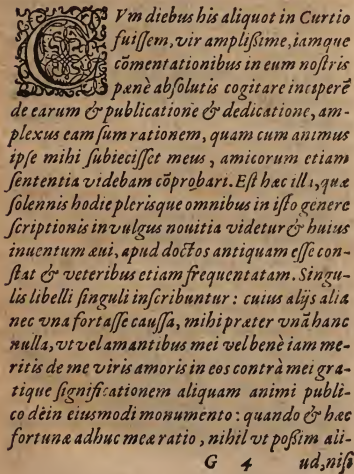 CVm diebus his aliquot in Curtio
fuißem, vir amplißime, iamque
cōmentationibus in eum nostris
pænè absolutis cogitare incaperē
de earum & publicatione & dedicatione, am-
plexus eam sum rationem, quam cum animus
ipse mihi subiecisset meus, amicorum etiam
sententia videbam cōprobari. Est hæc illa, quæ
solennis hodie plerisque omnibus in isto genere
scriptionis in vulgus nouitia videtur & huius
inuentum æui, apud doctos antiquam esse con-
stat & veteribus etiam frequentatam. Singu-
lis libelli singuli inscribuntur: cuius alijs alia
nec vna fortasse caussa, mihi præter vnā hanc
nulla, vt vel amantibus mei vel benè iam me-
ritis de me viris amoris in eos contrà mei gra-
tique significationem aliquam animi publi-
co dein eiusmodi monumento: quando & hæc
fortunæ adhuc meæ ratio, nihil vt poßim ali-
G 4 ud, nisi